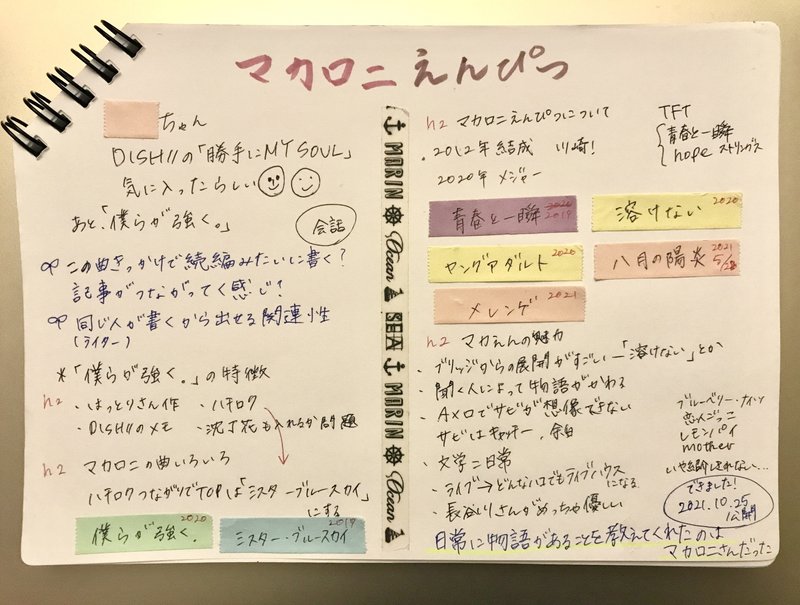 マカロニえんぴつ
ちゃん
DISH//の「勝手にMY SOUL」
気に入ったらしい
あと、「僕らが強く。」
会話
この曲きっかけで続編みたいに書く?
記事がつながってく感じ!
同じ人が書くから出せる関連性
(ライター)
*「僕らが強く。」の特徴
h2
・はっとりさん作 ・ハチロク
・DISH//のメモ ・沈丁花も入れるか問題
h2 マカロニの曲いろいろ
ハチロクつながりでTOPは「ミスター・ブルースカイ」
にする
僕らが強く。 2020
ミスター・ブルースカイ 2019
MARIN Ocean SEA MARIN Ocean
h2 マカロニえんぴつについて
・2012年結成 川崎!
2020年 メジャー
TFT
青春と一瞬
hope ストリングス
青春と一瞬 2019
溶けない 2020
ヤングアダルト 2020
八月の陽炎 2021 5/28
メレンゲ 2021
h2 マカえんの魅力
・ブリッジからの展開がすごい―「溶けない」とか
・聞く人によって物語がかわる
・Aメロでサビが想像できない
サビはキャッチー、余白
・文学=日常
・ライブ→どんな箱でもライブハウス
になる
・長谷川さんがめっちゃ優しい
ブルーベリー・ナイツ
恋人ごっこ
レモンパイ
mother
いや紹介しきれない…
できました!
2021.10.25
公開
日常に物語があることを教えてくれたのは
マカロニさんだった